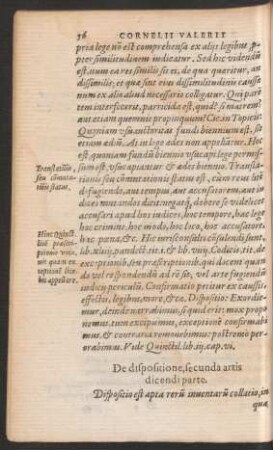 36 CORNELII VALERII
priæ lege nõ est comprehensa ex alijs legibus ꝑ-
pter similitudinem iudicatur. Sed hic videndũ
est num ea res similis sit ei, de qua quæritur, an
dissimilis; et quæ sint eius dissimilitudinis causæ
num ex alia aliud necessariò colligatur. Qui paren
tem interficerit, parricida est, quid? si matrem?
aut etiam quemuis propinquum? Cic. in Topicis:
Quoniam vsus autoritas fundi biennium est, sit
etiam ædiũ. At in lege ædes non appellantur. Hoc
est, quoniam fundũ biennio vsu capi lege permis-
sum est, vsu capiantur & ædes biennio. Transla-
tionis seu cõmutationis status est, cùm reus
defugiendo, aut tempus, aut accusatorem, aut in-
dices mutandos dicit: negatq́, debere se vi delicet
accusari ab hoc, his iudices, hoc tempore, hac lege
hoc crimine, hoc modo, hoc loco, hoc accusatore,
hac pœna, &c. Hoc iureconsulti
lib. xliiij. pandect. tit. i. & lib. viij. Codicis, tit. de
exceptionib, seu præscriptionib,
do vel respondendũ ad rẽ sit, vel arte fugiendũ
iudicij periculũ. Confirmatio petitur ex caussis,
effectis, legibus, more, &c. Dispositio: Exordie-
mur, deinde narrabimus, si quid libebit: mox propo
nemus, tum excipiemus, exceptionẽ confirmabi
mus, & contraria remouebimus: postremò per-
orabimus. Vide Quinctil. lib. iij. cap. vi.
Translationis
seu commuta-
tionis status.
Hunc Quinti-
liani
ptionis
nis quam ex
ceptionis
appellare.
De dispositione, secunda artis
dicendi parte.
Dispositio est apta rerũ inuentarũ collatio, in
quæ